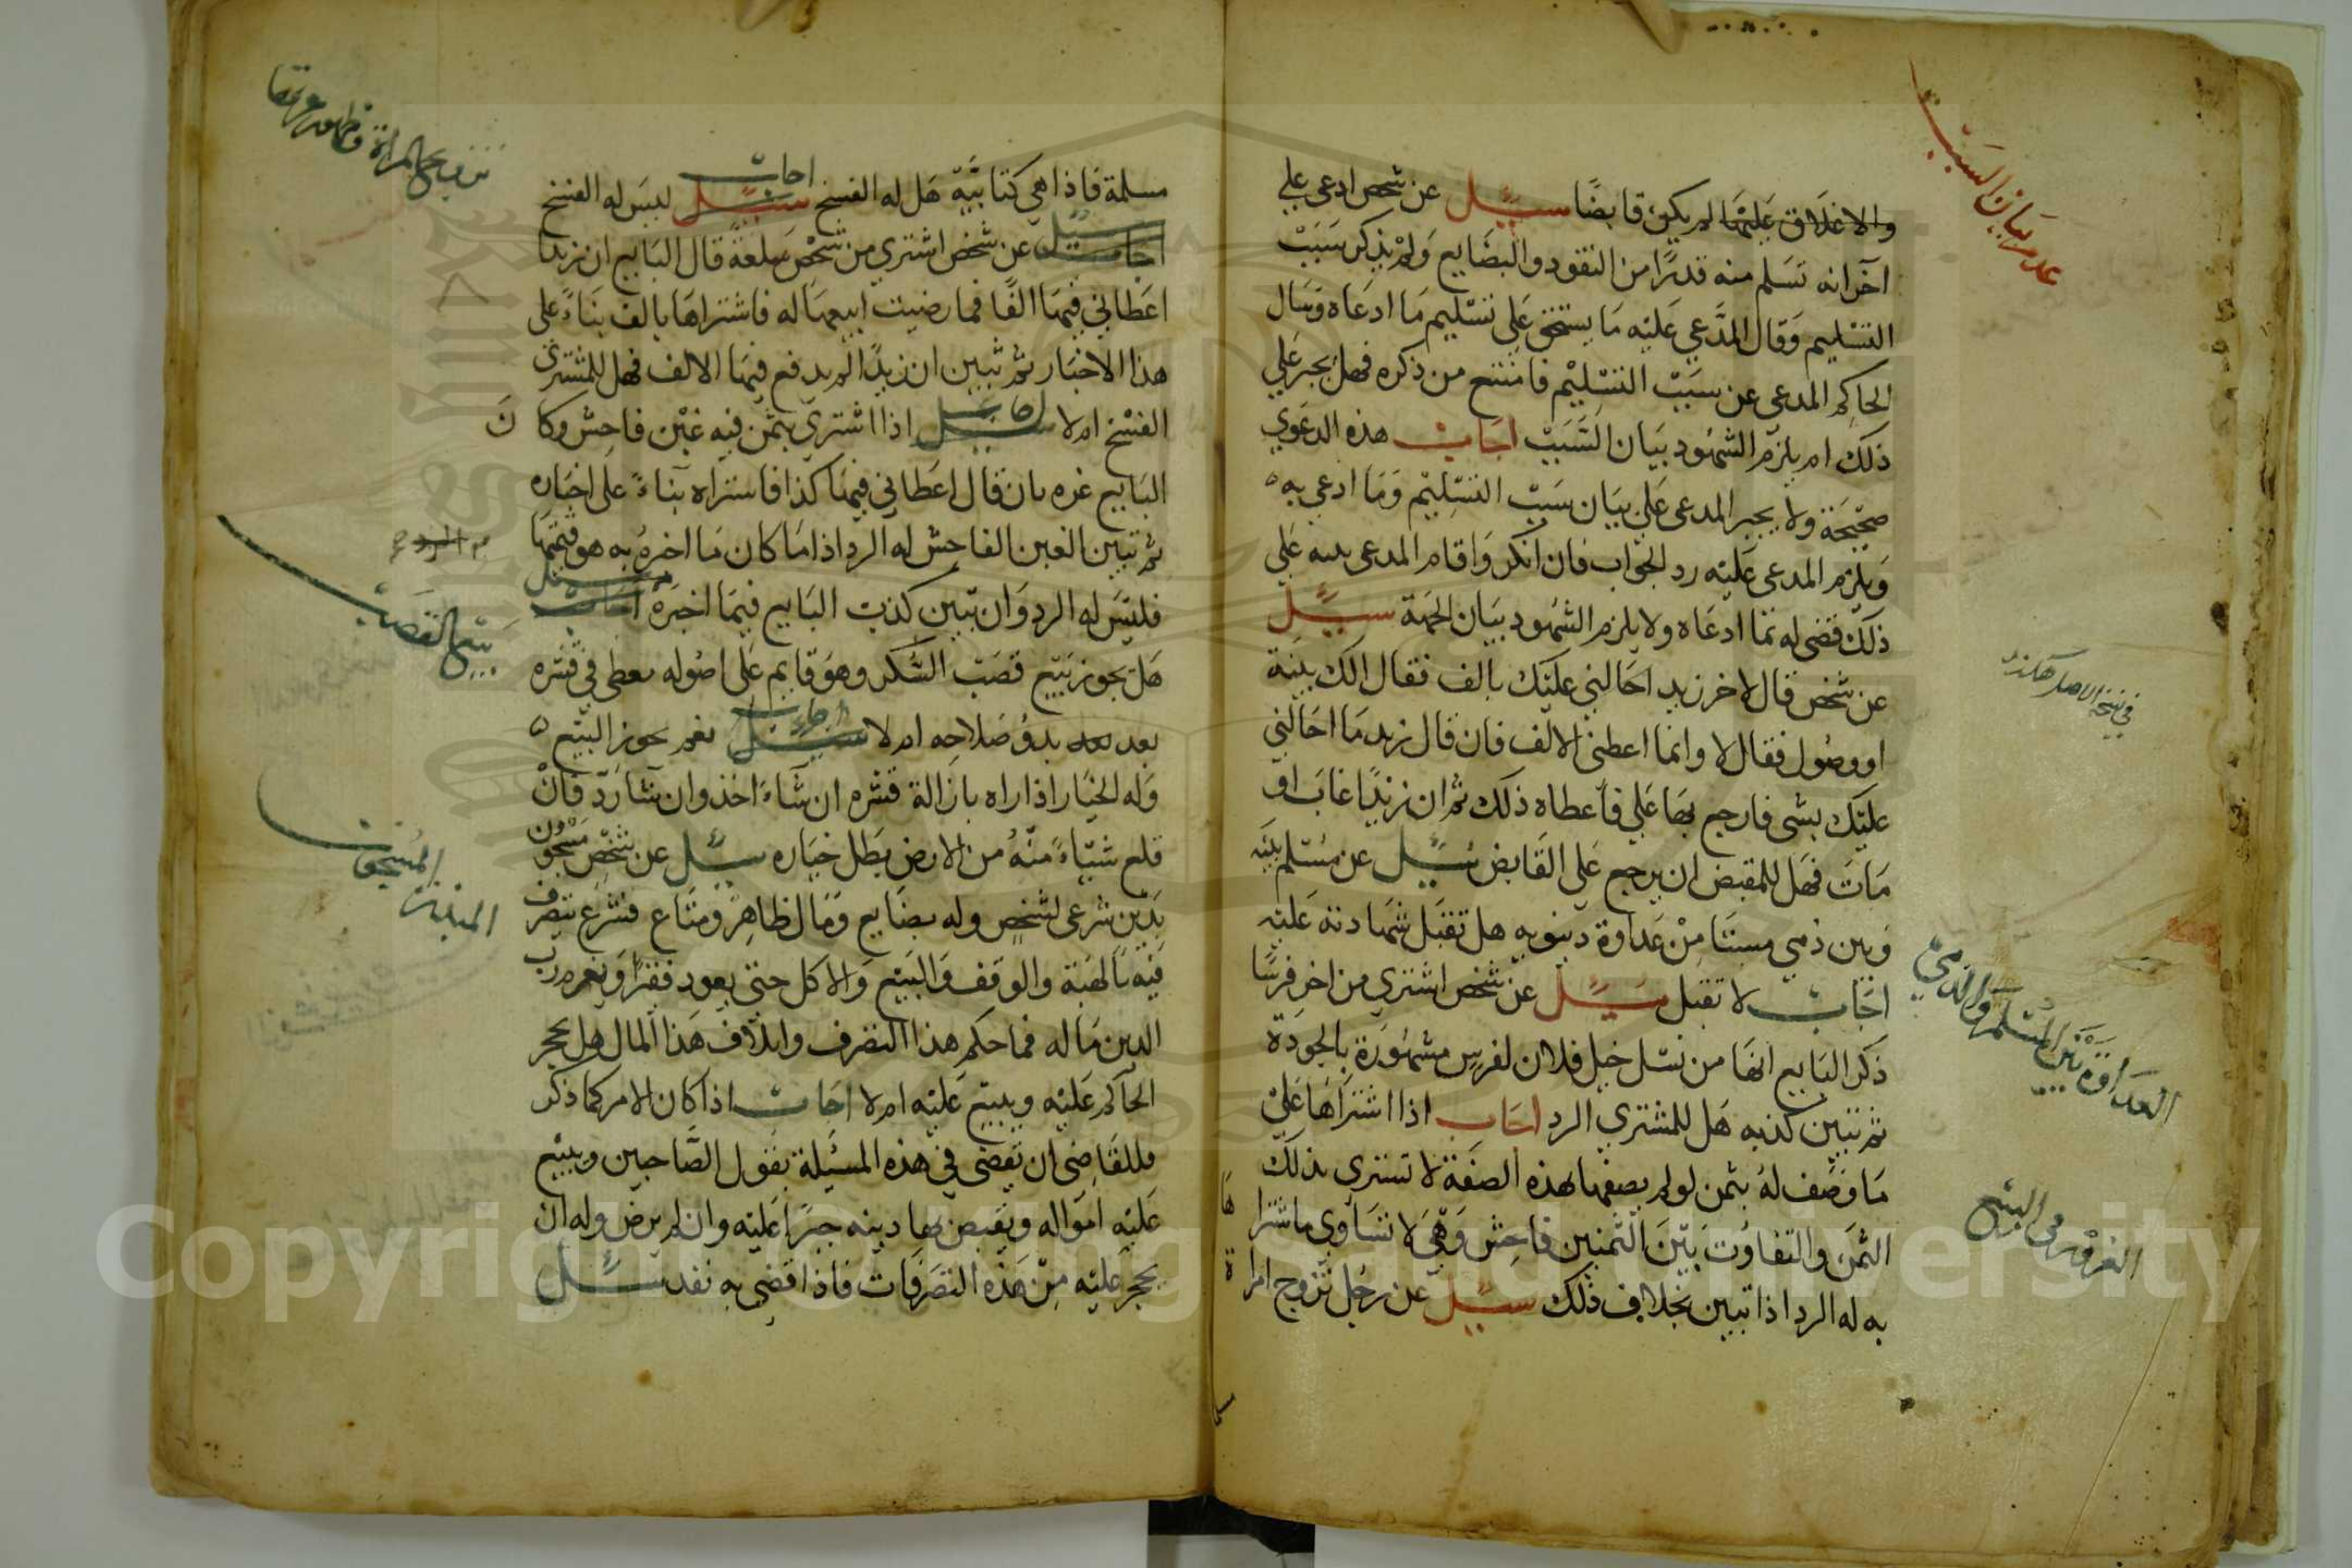 والاغلاق عليهما لم يكن قابضًا سئل عن شخص ادعى على
آخر انه تسلم منه قدرًا من النقود والبضايع ولم يذكر سبب
التسليم وقال المدعي عليه ما يستحق على تسليم ما ادعاه وسال
الحاكم المدعى عن سبب التسليم فامتنع من ذكره فهل يجبر على
ذلك ام يلزم الشهود بيان السبب اجاب هذه الدعوي
صحيحة ولا يجبر المدعى على بيان سبب التسليم وما ادعي به
ويلزم المدعى عليه رد الجواب فان انكر واقام المدعى بينه على
ذلك قضى له بما ادعاه ولا يلزم الشهود بيان الجهة سئل
عن شخص قال لاخر زيد احالني عليك بالف فقال الك بينة
او وصول فقال لا وانما اعطني الالف فان قال زيد ما احالني
عليك بشى فارجع بها علي فاعطاه ذلك ثم ان زيدًا غاب او
مات فهل للمقبض ان يرجع على القابض سئل عن مسلم بينه
وبين ذمي مستامن عداوة دنيويه هل تقبل شهادته عليه
اجاب لا تقبل سئل عن شخص اشتري من اخر فرسًا
ذكر البايع انها من نسل خيل فلان لفرس مشهورة بالجودة
ثم تبين كذبه هل للمشتري الرد اجاب اذا اشتراها على
ما وصف له بثمن لو لم يصفها بهذه الصفة لا تشترى بذلك
الثمن والتفاوت بين الثمنين فاحش وهي لا تساوي ما اشتراها
به له الرد اذا تبين بخلاف ذلك سئل عن رجل تزوج امراة
عدم بيان السبب
في نسخة الاصل هكذا
العداوة بين المسلم والذمي
الغرور في البيع
مسلمة فاذا هي كتابية هل له الفسخ اجاب سئل ليس له الفسخ
سئل اجاب عن شخص اشتري من شخص سلعة قال البايع ان زيدا
اعطاني فيها الفًا فما رضيت ابيعها له فاشتراها بالف بناءً على
هذا الاخبار ثم تبين ان زيدًا لم يدفع فيها الالف فهل للمشتري
الفسخ ام لا اجاب سئل اذا اشتري بثمن فيه غبن فاحش وكان
البايع غره بان قال اعطاني فيها كذا فاشتراه بناءً على اخباره
ثم تبين الغبن الفاحش له الرد اذا ما كان ما اخره به هو قيمتها
فليس له الرد وان تبين كذب البايع فيما اخبره اجاب سئل
هل يجوز بيع قصب السكر وهو قايم على اصوله مغطى في قشره
بعد بدو صلاحه ام لا اجاب سئل نعم يجوز البيع
وله الخيار اذا راه بازالة قشره ان شاء اخذ وان شا رد فان
قلع شيئاء منه من الارض بطل خياره سئل عن شخص مسجون
بدين شرعى لشخص وله بضايع ومال ظاهر ومتاع فشرع يتصرف
فيه بالهبة والوقف والبيع والاكل حتى يعود فقيرًا ويعدم رب
الدين ماله فما حكم هذا التصرف واتلاف هذا المال هل يحجر
الحاكم عليه ويبيع عليه ام لا اجاب اذا كان الامر كما ذكر
فللقاضى ان يقضى في هذه المسئلة بقول الصاحبين ويبيع
عليه امواله ويقبض بها دينه جبرًا عليه وان لم يرض وله ان
يحجر عليه من هذه التصرفات فاذا قضى به نفد سئل
بيع القصب
المسجون
المبذر
Copyright © King Saud University